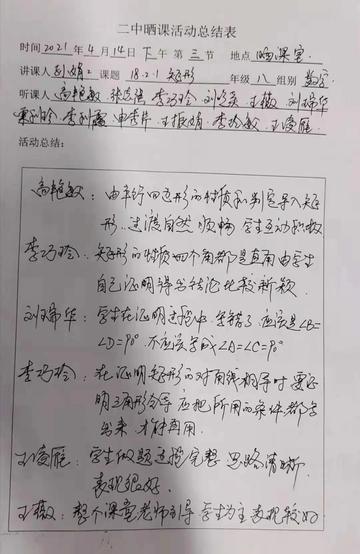 二中晒课活动总结表
时间 2021 年 4 月 14 日 下 午 第 三 节 地点 晒课室
讲课人 孙娟 课题 18.2.1 矩形 年级 八 组别 数学
听课人 高艳敏 李巧玲 王薇 刘瑞华
王凌雁
活动总结:
高艳敏: 由平行四边形的性质和判定导入矩
形. 过渡自然 顺畅 学生互动积极
李巧玲: 矩形的性质四个角都是直角由学生
自己证明得出结论 比较新颖.
刘瑞华: 学生在证明过程中 写错了 应该是∠B=
∠D=90° 不应该写成∠A=∠C=90°
李巧玲: 在证明矩形的对角线相等时 要证
明三角形全等 应把所用的条件都写
出来 才能再用.
王凌雁: 学生做题过程完整 思路清晰.
表现很好.
王薇: 整个课堂老师引导 学生为主 表现较好